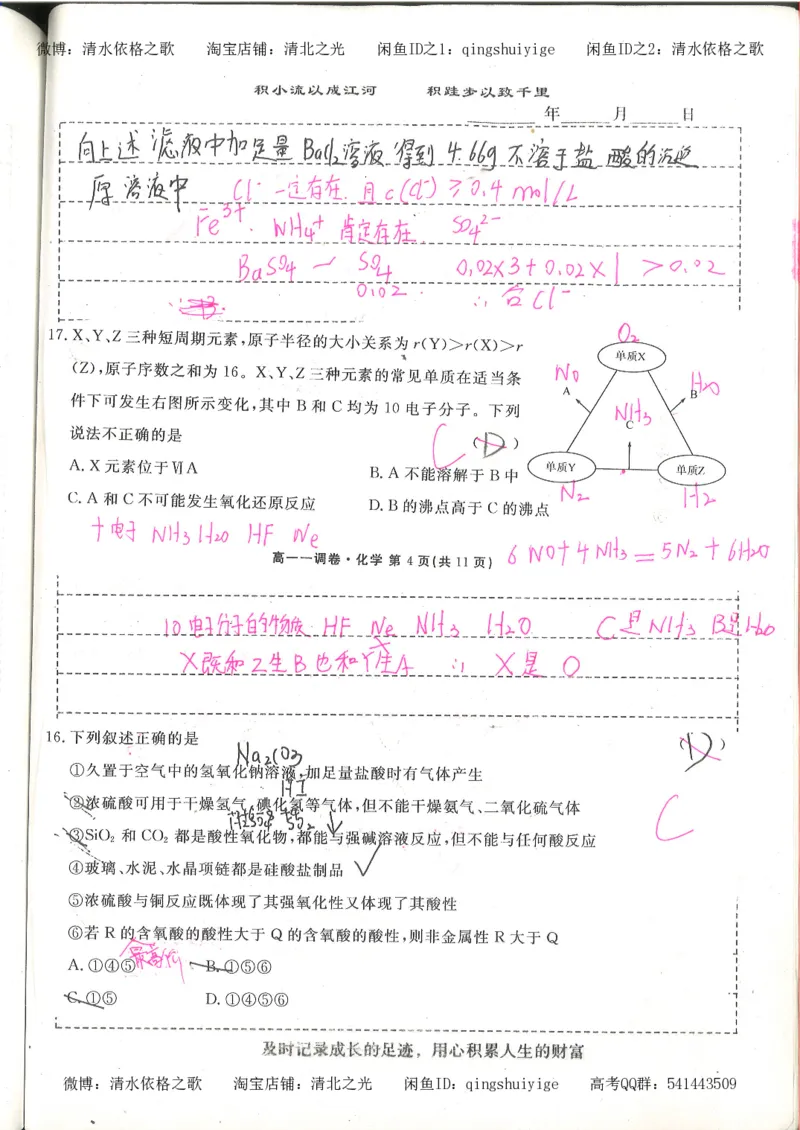 微博：清水依格之歌 淘宝店铺：清北之光 闲鱼ID之1：qingshuiyige 闲鱼ID之2：清水依格之歌
积小流以成江河 积跬步以致千里
年 月 日
向上述滤液中加足量BaCl2溶液得到4.66g不溶于盐酸的沉淀
原溶液中 Cl⁻一定存在 且c(Cl⁻)≥0.4 mol/L
Fe³⁺. NH4⁺ 肯定存在 SO4²⁻
BaSO4 — SO4 0.02×3+0.02×1 >0.02
0.02 ∴含Cl⁻
17. X、Y、Z三种短周期元素,原子半径的大小关系为r(Y)>r(X)>r
(Z),原子序数之和为16。X、Y、Z三种元素的常见单质在适当条
件下可发生右图所示变化,其中B和C均为10电子分子。下列
说法不正确的是 (D) C
O2
单质X
NO
A
H2O
B
NH3
C
单质Y
单质Z
N2
H2
A. X元素位于ⅥA B. A不能溶解于B中
C. A和C不可能发生氧化还原反应 D. B的沸点高于C的沸点
十电子 NH3 H2O HF Ne
高一一调卷·化学 第4页(共11页) 6NO+4NH3=5N2+6H2O
10电子分子的物质 HF Ne NH3 H2O C是NH3 B是H2O
X既和Z生B也和Y生A ∴ X是O
16. 下列叙述正确的是 (D)
Na2CO3
①久置于空气中的氢氧化钠溶液,加足量盐酸时有气体产生
HI
②浓硫酸可用于干燥氢气、碘化氢等气体,但不能干燥氨气、二氧化硫气体
③SiO₂和CO₂都是酸性氧化物,都能与强碱溶液反应,但不能与任何酸反应
C
④玻璃、水泥、水晶项链都是硅酸盐制品
⑤浓硫酸与铜反应既体现了其强氧化性又体现了其酸性
⑥若R的含氧酸的酸性大于Q的含氧酸的酸性,则非金属性R大于Q
最高价
A. ①④⑤ B. ①⑤⑥
C. ①⑤ D. ①④⑤⑥
及时记录成长的足迹，用心积累人生的财富
微博：清水依格之歌 淘宝店铺：清北之光 闲鱼ID：qingshuiyige 高考QQ群：541443509